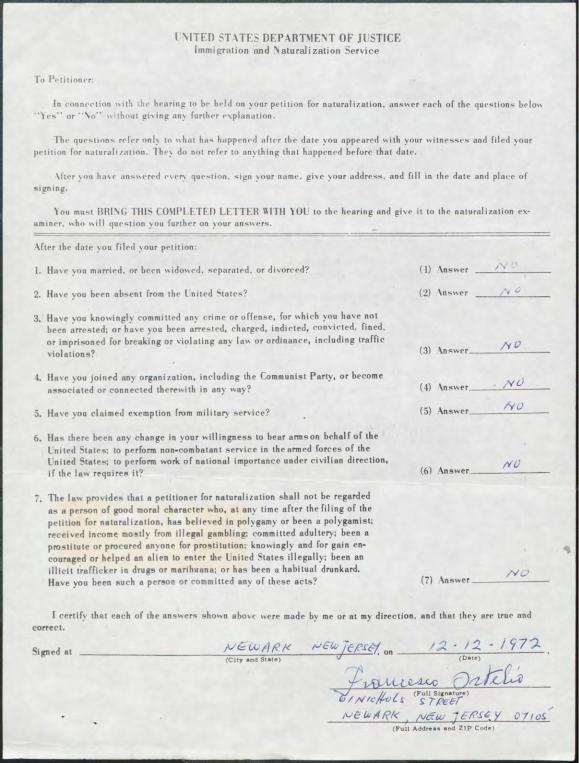 UNITED STATES DEPARTMENT OF JUSTICE
Immigration and Naturalization Service
To Petitioner:
In connection with the hearing to be held on your petition for naturalization, answer each of the questions below
"Yes" or "No" without giving any further explanation.
The questions refer only to what has happened after the date you appeared with your witnesses and filed your
petition for naturalization. They do not refer to anything that happened before that date.
After you have answered every question, sign your name, give your address, and fill in the date and place of
signing.
You must BRING THIS COMPLETED LETTER WITH YOU to the hearing and give it to the naturalization ex-
aminer, who will question you further on your answers.
After the date you filed your petition:
1. Have you married, or been widowed, separated, or divorced? (1) Answer NO
2. Have you been absent from the United States? (2) Answer NO
3. Have you knowingly committed any crime or offense, for which you have not
been arrested; or have you been arrested, charged, indicted, convicted, fined,
or imprisoned for breaking or violating any law or ordinance, including traffic
violations? (3) Answer NO
4. Have you joined any organization, including the Communist Party, or become
associated or connected therewith in any way? (4) Answer NO
5. Have you claimed exemption from military service? (5) Answer NO
6. Has there been any change in your willingness to bear arms on behalf of the
United States; to perform non-combatant service in the armed forces of the
United States; to perform work of national importance under civilian direction,
if the law requires it? (6) Answer NO
7. The law provides that a petitioner for naturalization shall not be regarded
as a person of good moral character who, at any time after the filing of the
petition for naturalization, has believed in polygamy or been a polygamist;
received income mostly from illegal gambling; committed adultery; been a
prostitute or procured anyone for prostitution; knowingly and for gain en-
couraged or helped an alien to enter the United States illegally; been an
illicit trafficker in drugs or marihuana; or has been a habitual drunkard.
Have you been such a person or committed any of these acts? (7) Answer NO
I certify that each of the answers shown above were made by me or at my direction, and that they are true and
correct.
Signed at NEWARK NEW JERSEY, on 12-12-1972.
(City and State) (Date)
Francesco Ostelio
(Full Signature)
NICHOLS STREET
NEWARK, NEW JERSEY 07105
(Full Address and ZIP Code)